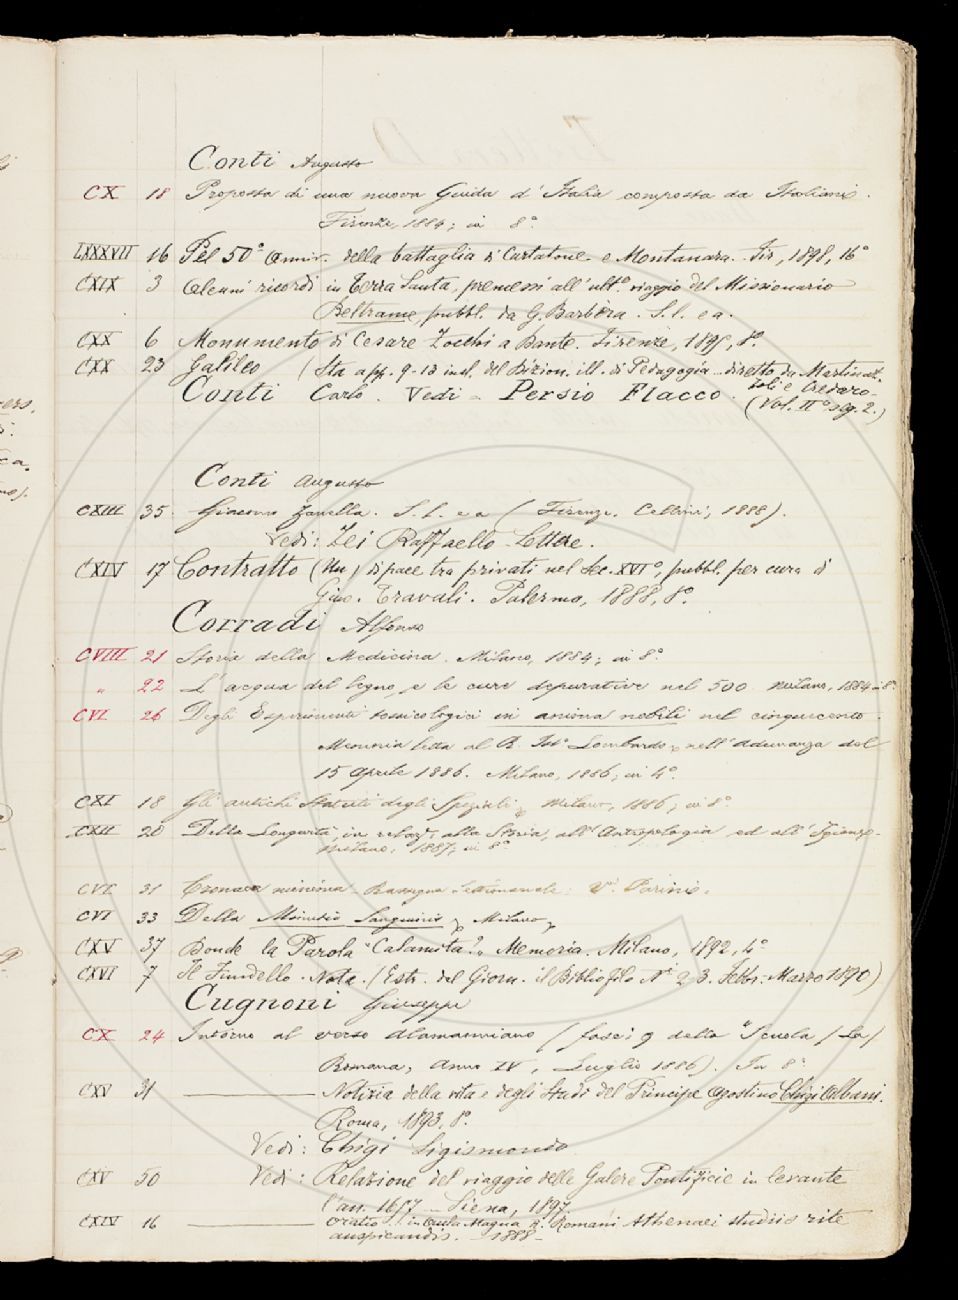 Conti Augusto
CX 18 Proposta di una nuova Guida d'Italia composta da Italiani.
Firenze, 1884; in 8°
LXXXVII 16 Pel 50° Anniv. della battaglia di Curtatone e Montanara. Fir, 1898, 16°
CXIX 3 Alcuni ricordi in Terra Santa, premessi all'ult°. viaggio del Missionario
Beltrame, pubbl. da G. Barbèra. S. l. e a.
CXX 6 Monumento di Cesare Zocchi a Dante. Firenze, 8°.
CXX 23 Galileo (Sta a pp. 9-13 ind. del Dizion. ill. di Pedagogia diretto da Martinaz-
zoli e Credaro
Conti Carlo. Vedi Persio Flacco.
(Vol. II° 2.)
Conti Augusto
CXIII 35 Giacomo Zanella. S. l. e a (Firenze, Cellini, 1888).
Vedi: Zei Raffaello Lettere.
CXIV 17 Contratto (Un) di pace tra privati nel Sec. XVI°, pubbl. per cura di
Gius. Travali. Palermo, 1888, 8°.
Corradi Alfonso
CVIII 21 Storia della Medicina. Milano, 1884; in 8°
" 22 L'acqua del legno, e le cure depurative nel 500. Milano, 1884 in 8°
CVI 26 Degli Esperimenti tossicologici in anima nobili nel cinquecento.
Memoria letta al R. Ist° Lombardo, nell'adunanza del
15 aprile 1886. Milano, 1886; in 4°.
CXI 18 Gli antichi Statuti degli Speziali, Milano, 1886; in 8°.
CXII 20 Della Longevità, in relaz°. alla Storia, all'Antropologia ed all'Igiene.
Milano, 1887; in 8°
CVI 31 Cronaca minima Rassegna Settimanale: Vi. Parini.
CVI 33 Della Minutio Sanguinis, Milano,
CXV 37 Donde la Parola "Calamita?" Memoria. Milano, 1892, 4°
CXVI 7 Il Fundello. Nota. (Estr. del Giorn. il Bibliofilo N° 2-3. Febbr: Marzo 1890)
Cugnoni Giuseppe
CX 24 Intorno al verso alamanniano (fasc: 9 della "Scuola (La)
Romana, Anno IV, Luglio 1886). In 8°
CXV 31 Notizia della vita e degli studi del Principe Agostino Chigi Albani.
Roma, 1893, 8°.
Vedi: Chigi Sigismondo
CXV 50 Vedi: Relazione del viaggio delle Galere Pontificie in levante
l'an. Siena, 1897.
CXIV 16 Oratio in Aula Magna R. Romani Athenaei studiis rite
auspicandis. 1888